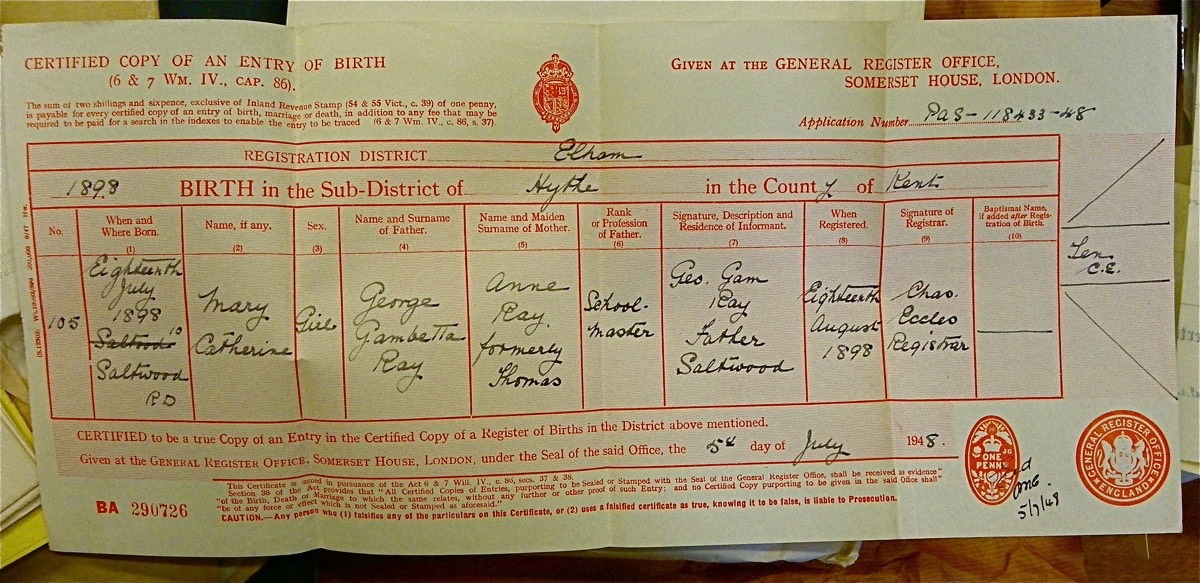 CERTIFIED COPY OF AN ENTRY OF BIRTH
(6 & 7 WM. IV., CAP. 86).
The sum of two shillings and sixpence, exclusive of Inland Revenue Stamp (54 & 55 Vict., c. 39) of one penny,
is payable for every certified copy of an entry of birth, marriage or death, in addition to any fee that may be
required to be paid for a search in the indexes to enable the entry to be traced (6 & 7 Wm. IV., c. 86, s. 37).
GIVEN AT THE GENERAL REGISTER OFFICE,
SOMERSET HOUSE, LONDON.
Application Number PAS-118433-48
REGISTRATION DISTRICT Elham
1898 BIRTH in the Sub-District of Hythe in the County of Kent
No.
When and
Where Born.
(1)
Name, if any.
(2)
Sex.
(3)
Name and Surname
of Father.
(4)
Name and Maiden
Surname of Mother.
(5)
Rank
or Profession
of Father.
(6)
Signature, Description and
Residence of Informant.
(7)
When
Registered.
(8)
Signature of
Registrar.
(9)
Baptismal Name,
if added after Regis-
tration of Birth.
(10)
105
Eighteenth
July
1898
10
Saltwood
Saltwood
RD
Mary
Catherine
Girl
George
Gambetta
Ray
Anne
Ray
formerly
Thomas
School-
master
Geo. Gam
Ray
Father
Saltwood
Eighteenth
August
1898
Chas.
Eccles
Registrar
Ten
C.E.
CERTIFIED to be a true Copy of an Entry in the Certified Copy of a Register of Births in the District above mentioned.
Given at the GENERAL REGISTER OFFICE, SOMERSET HOUSE, LONDON, under the Seal of the said Office, the 5th day of July 1948.
This Certificate is issued in pursuance of the Act 6 & 7 Will. IV., c. 86, secs. 37 & 38.
Section 38 of the Act provides that "All Certified Copies of Entries, purporting to be Sealed or Stamped with the Seal of the General Register Office, shall be received as evidence"
"of the Birth, Death or Marriage to which the same relates, without any further or other proof of such Entry; and no Certified Copy purporting to be given in the said Office shall"
"be of any force or effect which is not Sealed or Stamped as aforesaid."
CAUTION.—Any person who (1) falsifies any of the particulars on this Certificate, or (2) uses a falsified certificate as true, knowing it to be false, is liable to Prosecution.
BA 290726
ONE
PENNY
5/7/48
GENERAL REGISTER OFFICE
ENGLAND